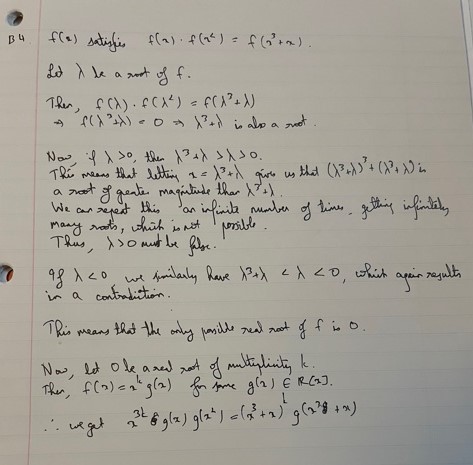 B4
f(x) satisfies f(x) · f(x²) = f(x³+x).
Let λ be a root of f.
Then, f(λ) · f(λ²) = f(λ³+λ)
⇒ f(λ³+λ) = 0 ⇒ λ³+λ is also a root.
Now, if λ>0, then λ³+λ > λ > 0.
This means that letting x = λ³+λ gives us that (λ³+λ)³ + (λ³+λ) is
a root of greater magnitude than λ³+λ.
We can repeat this an infinite number of times, getting infinitely
many roots, which is not possible.
Thus, λ>0 must be false.
If λ<0 we similarly have λ³+λ < λ < 0, which again results
in a contradiction.
This means that the only possible real root of f is 0.
Now, let 0 be a real root of multiplicity k.
Then, f(x) = xᵏ g(x) for some g(x) ∈ ℝ[x].
∴ we get x³ᵏ g(x) g(x²) = (x³+x)ᵏ g(x³+x)